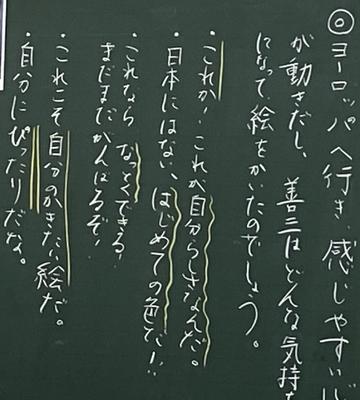 ◎ヨーロッパへ行き、感じやすい心
が動きだし、善三はどんな気持ち
になって、絵をかいたのでしょう。
・これか!これが自分らしさなんだ。
・日本にはない、はじめての色だ!!
・これなら なっとくできる。
まだまだがんばるぞ!
・これこそ自分のかきたい絵だ。
・自分にぴったりだな。